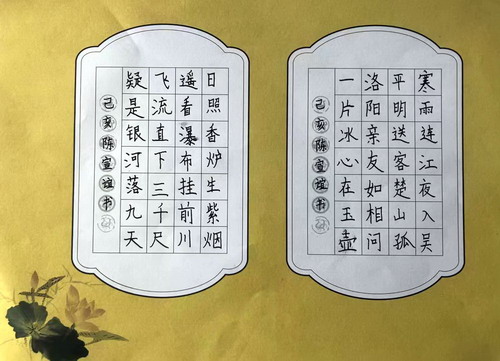 寒雨连江夜入吴
平明送客楚山孤
洛阳亲友如相问
一片冰心在玉壶
己亥陈宣谊书
日照香炉生紫烟
遥看瀑布挂前川
飞流直下三千尺
疑是银河落九天
己亥陈宣谊书